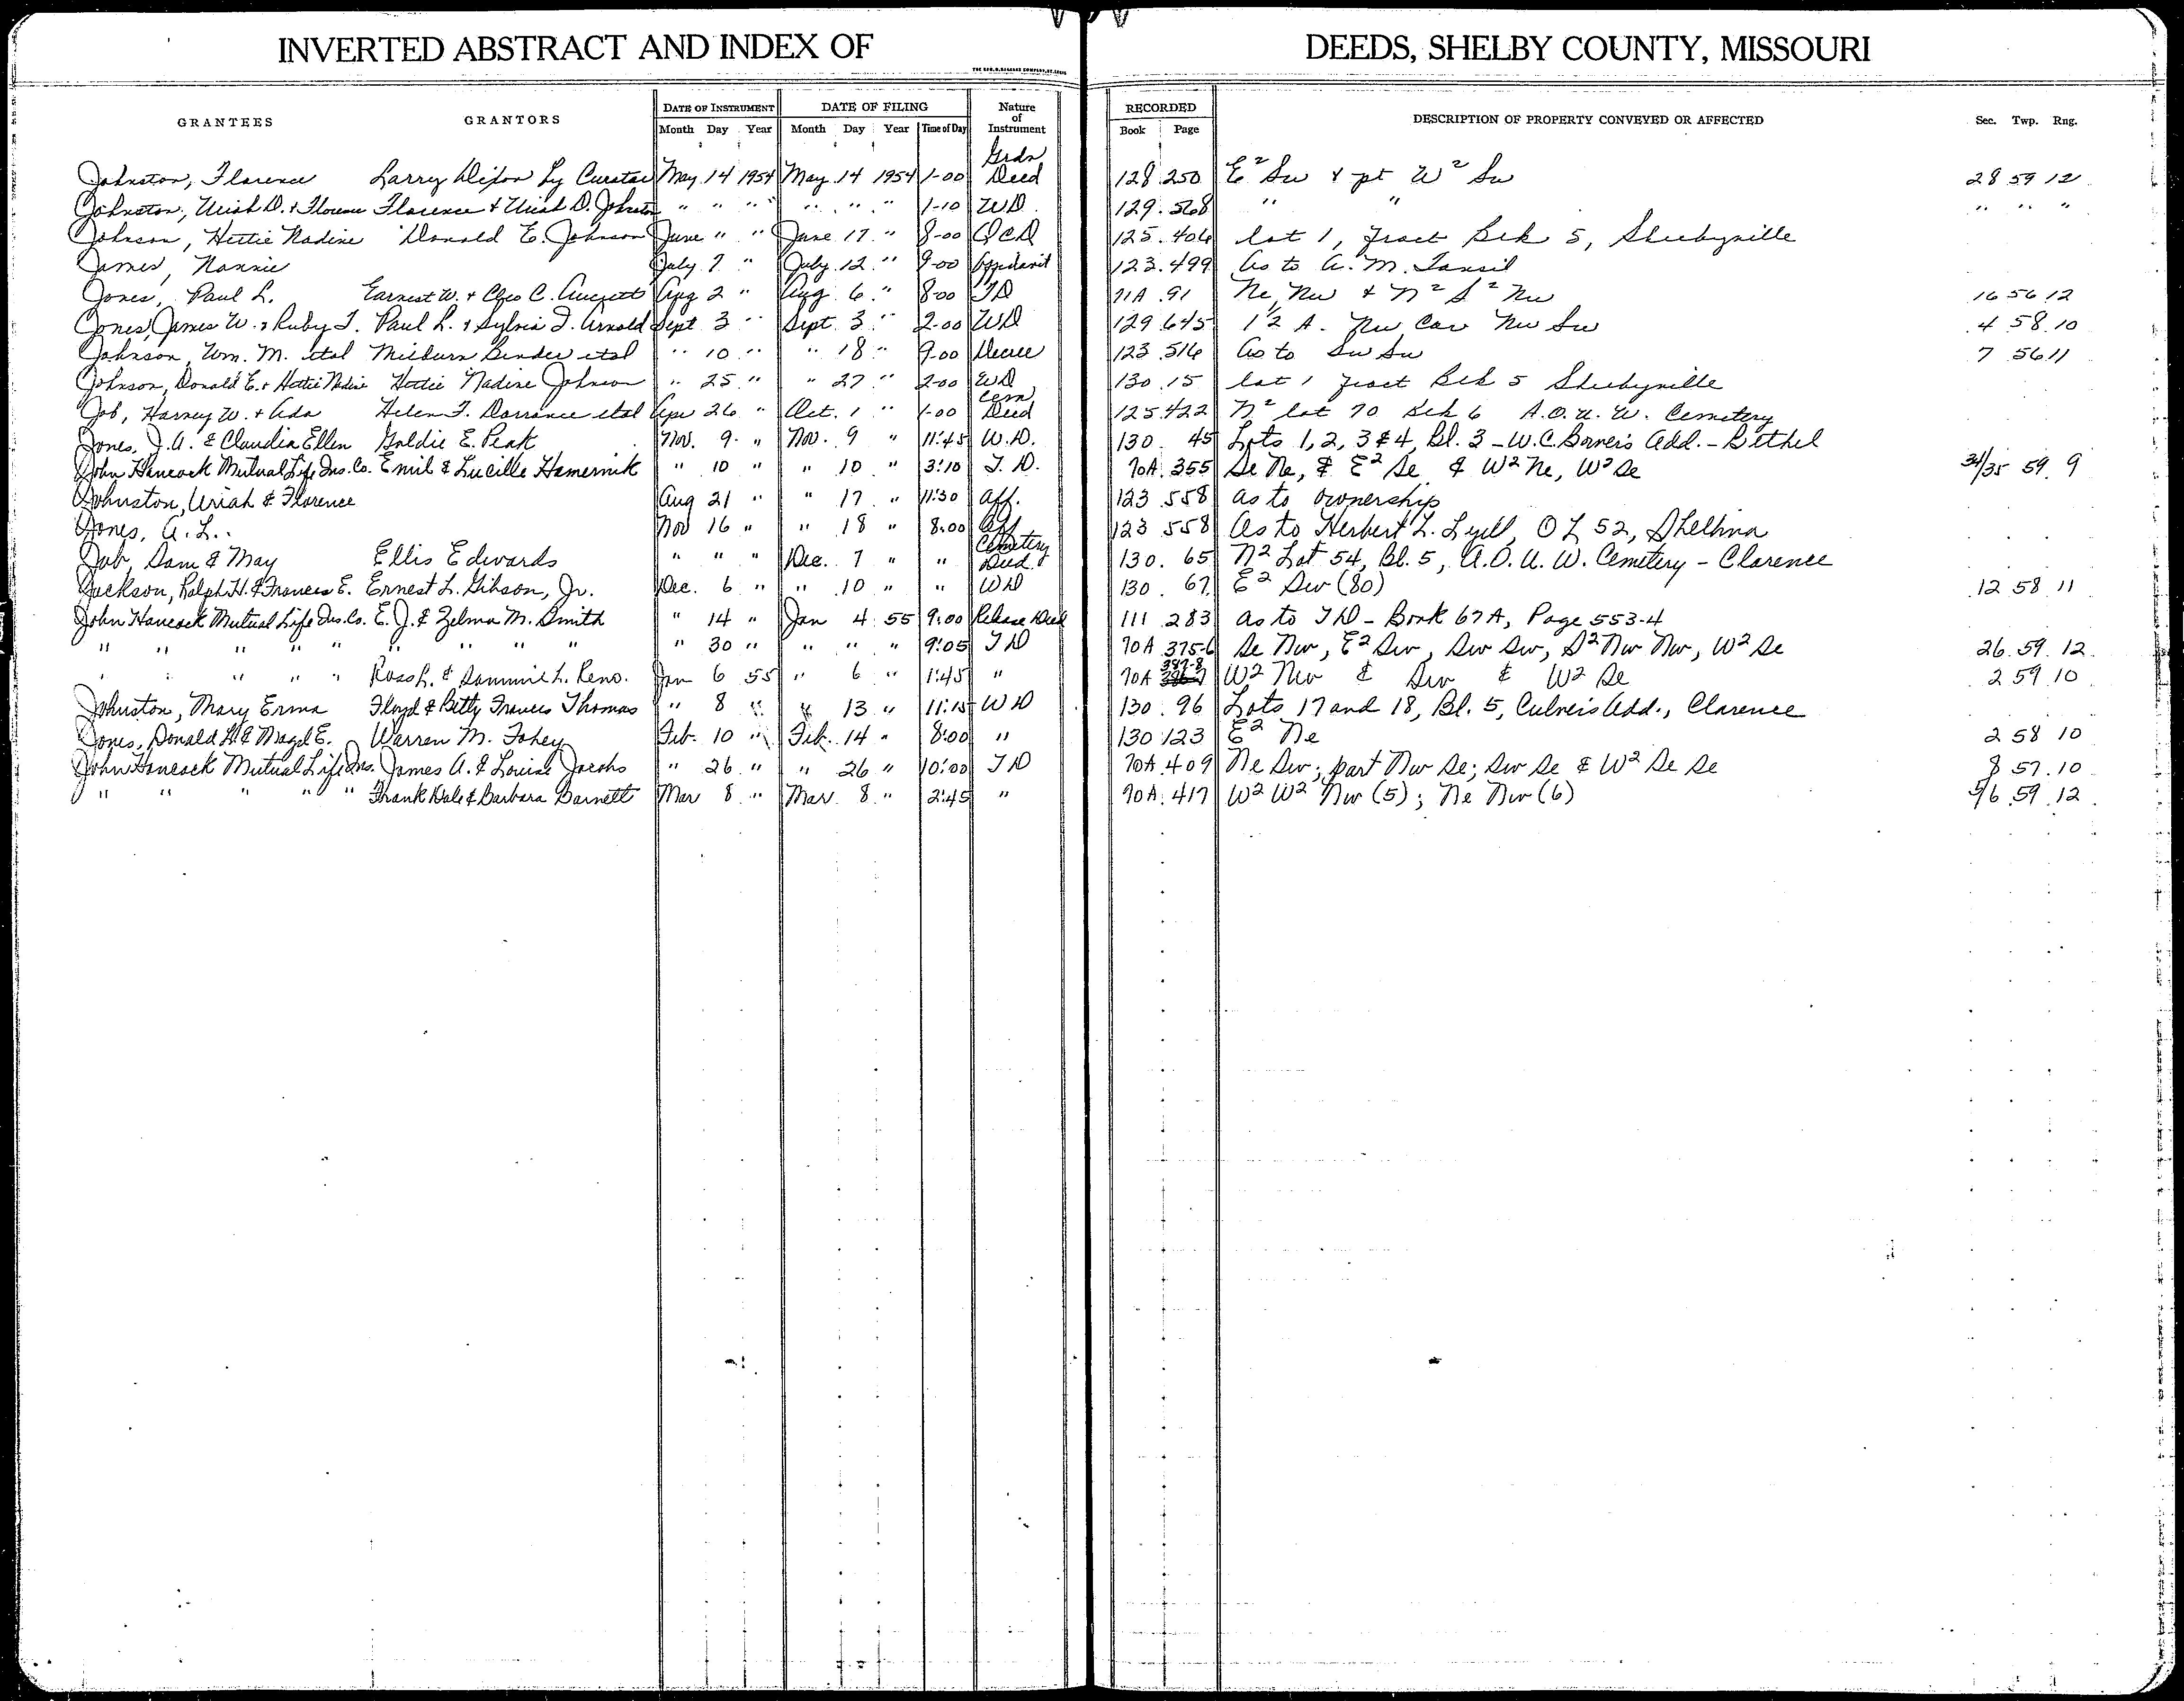 INVERTED ABSTRACT AND INDEX OF DEEDS, SHELBY COUNTY, MISSOURI
GRANTEES GRANTORS DATE OF INSTRUMENT DATE OF FILING Nature of Instrument RECORDED DESCRIPTION OF PROPERTY CONVEYED OR AFFECTED Sec. Twp. Rng.
Month Day Year Month Day Year Time of Day Book Page
Johnston, Florence Larry Dixon by Curator May 14 1954 May 14 1954 1-00 Grdn Deed 128 250 E² Sw & pt W² Sw 28 59 12
Johnston, Uriah D. & Florence Florence & Uriah D. Johnston " " " " " " 1-10 WD 129 568 " " " " "
Johnson, Hettie Nadine Donald E. Johnson June " " June 17 " 8-00 QCD 125 406 lot 1, fract Blk 5, Shelbyville
James, Nannie July 7 " July 12 " 9-00 Affidavit 123 499 As to A. M. Tansil
Jones, Paul L. Earnest W. & Cleo C. Aug 2 " Aug 6 " 8-00 TD 71A 91 Ne Nw & N² S² Nw 16 56 12
Jones, James W. & Ruby T. Paul L. & Sylvia I. Arnold Sept 3 " Sept 3 " 2-00 WD 129 645 1½ A. Nw Cor Nw Sw 4 58 10
Johnson, Wm. M. etal Milburn Binder etal " 10 " " 18 " 9-00 Decree 123 516 As to Sw Sw 7 56 11
Johnson, Donald E. & Hettie Nadine Hettie Nadine Johnson " 25 " " 27 " 2-00 WD 130 15 lot 1 fract Blk 5 Shelbyville
Job, Harvey W. & Ada Helen F. Dorrance etal Apr 26 " Oct. 1 " 1-00 Cem Deed 125 422 N² lot 70 Blk 6 A.O.U.W. Cemetery
Jones, J.A. & Claudia Ellen Goldie E. Peak Nov. 9 " Nov. 9 " 11:45 W.D. 130 45 Lots 1, 2, 3 & 4, Bl. 3 - W.C. Add. - Bethel
John Hancock Mutual Life Ins. Co. Emil & Lucille Hamernik " 10 " " 10 " 3:10 T.D. 70A 355 Se Ne, & E² Se & W² Ne, W² Se 34/35 59 9
Johnston, Uriah & Florence Aug 21 " " 17 " 11:30 Aff. 123 558 as to ownership
Jones, A. L. Nov 16 " " 18 " 8:00 Aff 123 558 As to Herbert L. Lyell, OL 52, Shelbina
Job, Sam & May Ellis Edwards " " " Dec. 7 " " Cemetery Deed 130 65 N² Lot 54, Bl. 5, A.O.U.W. Cemetery - Clarence
Jackson, Ralph H. & Frances E. Ernest L. Gibson, Jr. Dec. 6 " " 10 " " WD 130 67 E² Sw (80) 12 58 11
John Hancock Mutual Life Ins. Co. E. J. & Zelma M. Smith " 14 " Jan 4 55 9:00 Release Deed 111 283 as to TD - Book 67A, Page 553-4
" " " " " " " " " " 30 " " " " 9:05 TD 70A 375-6 Se Nw, E² Sw, Sw Sw, S² Nw Nw, W² Se 26 59 12
" " " " " Ross L. & Sammie L. Reno. Jan 6 55 " 6 " 1:45 " 70A 387-8 W² Nw & Sw & W² Se 2 59 10
Johnston, Mary Erma Floyd & Betty Frances Thomas " 8 " " 13 " 11:15 WD 130 96 Lots 17 and 18, Bl. 5, Culver's Add., Clarence
Jones, Donald H. & Magel E. Warren M. Fohey Feb. 10 " Feb. 14 " 8:00 " 130 123 E² Ne 2 58 10
John Hancock Mutual Life Ins. James A. & Louise Jacobs " 26 " " 26 " 10:00 TD 70A 409 Ne Sw; part Nw Se; Sw Se & W² Se Se 8 57 10
" " " " " Frank Dale & Barbara Barnett Mar 8 " Mar. 8 " 2:45 " 70A 417 W² W² Nw (5); Ne Nw (6) 5/6 59 12